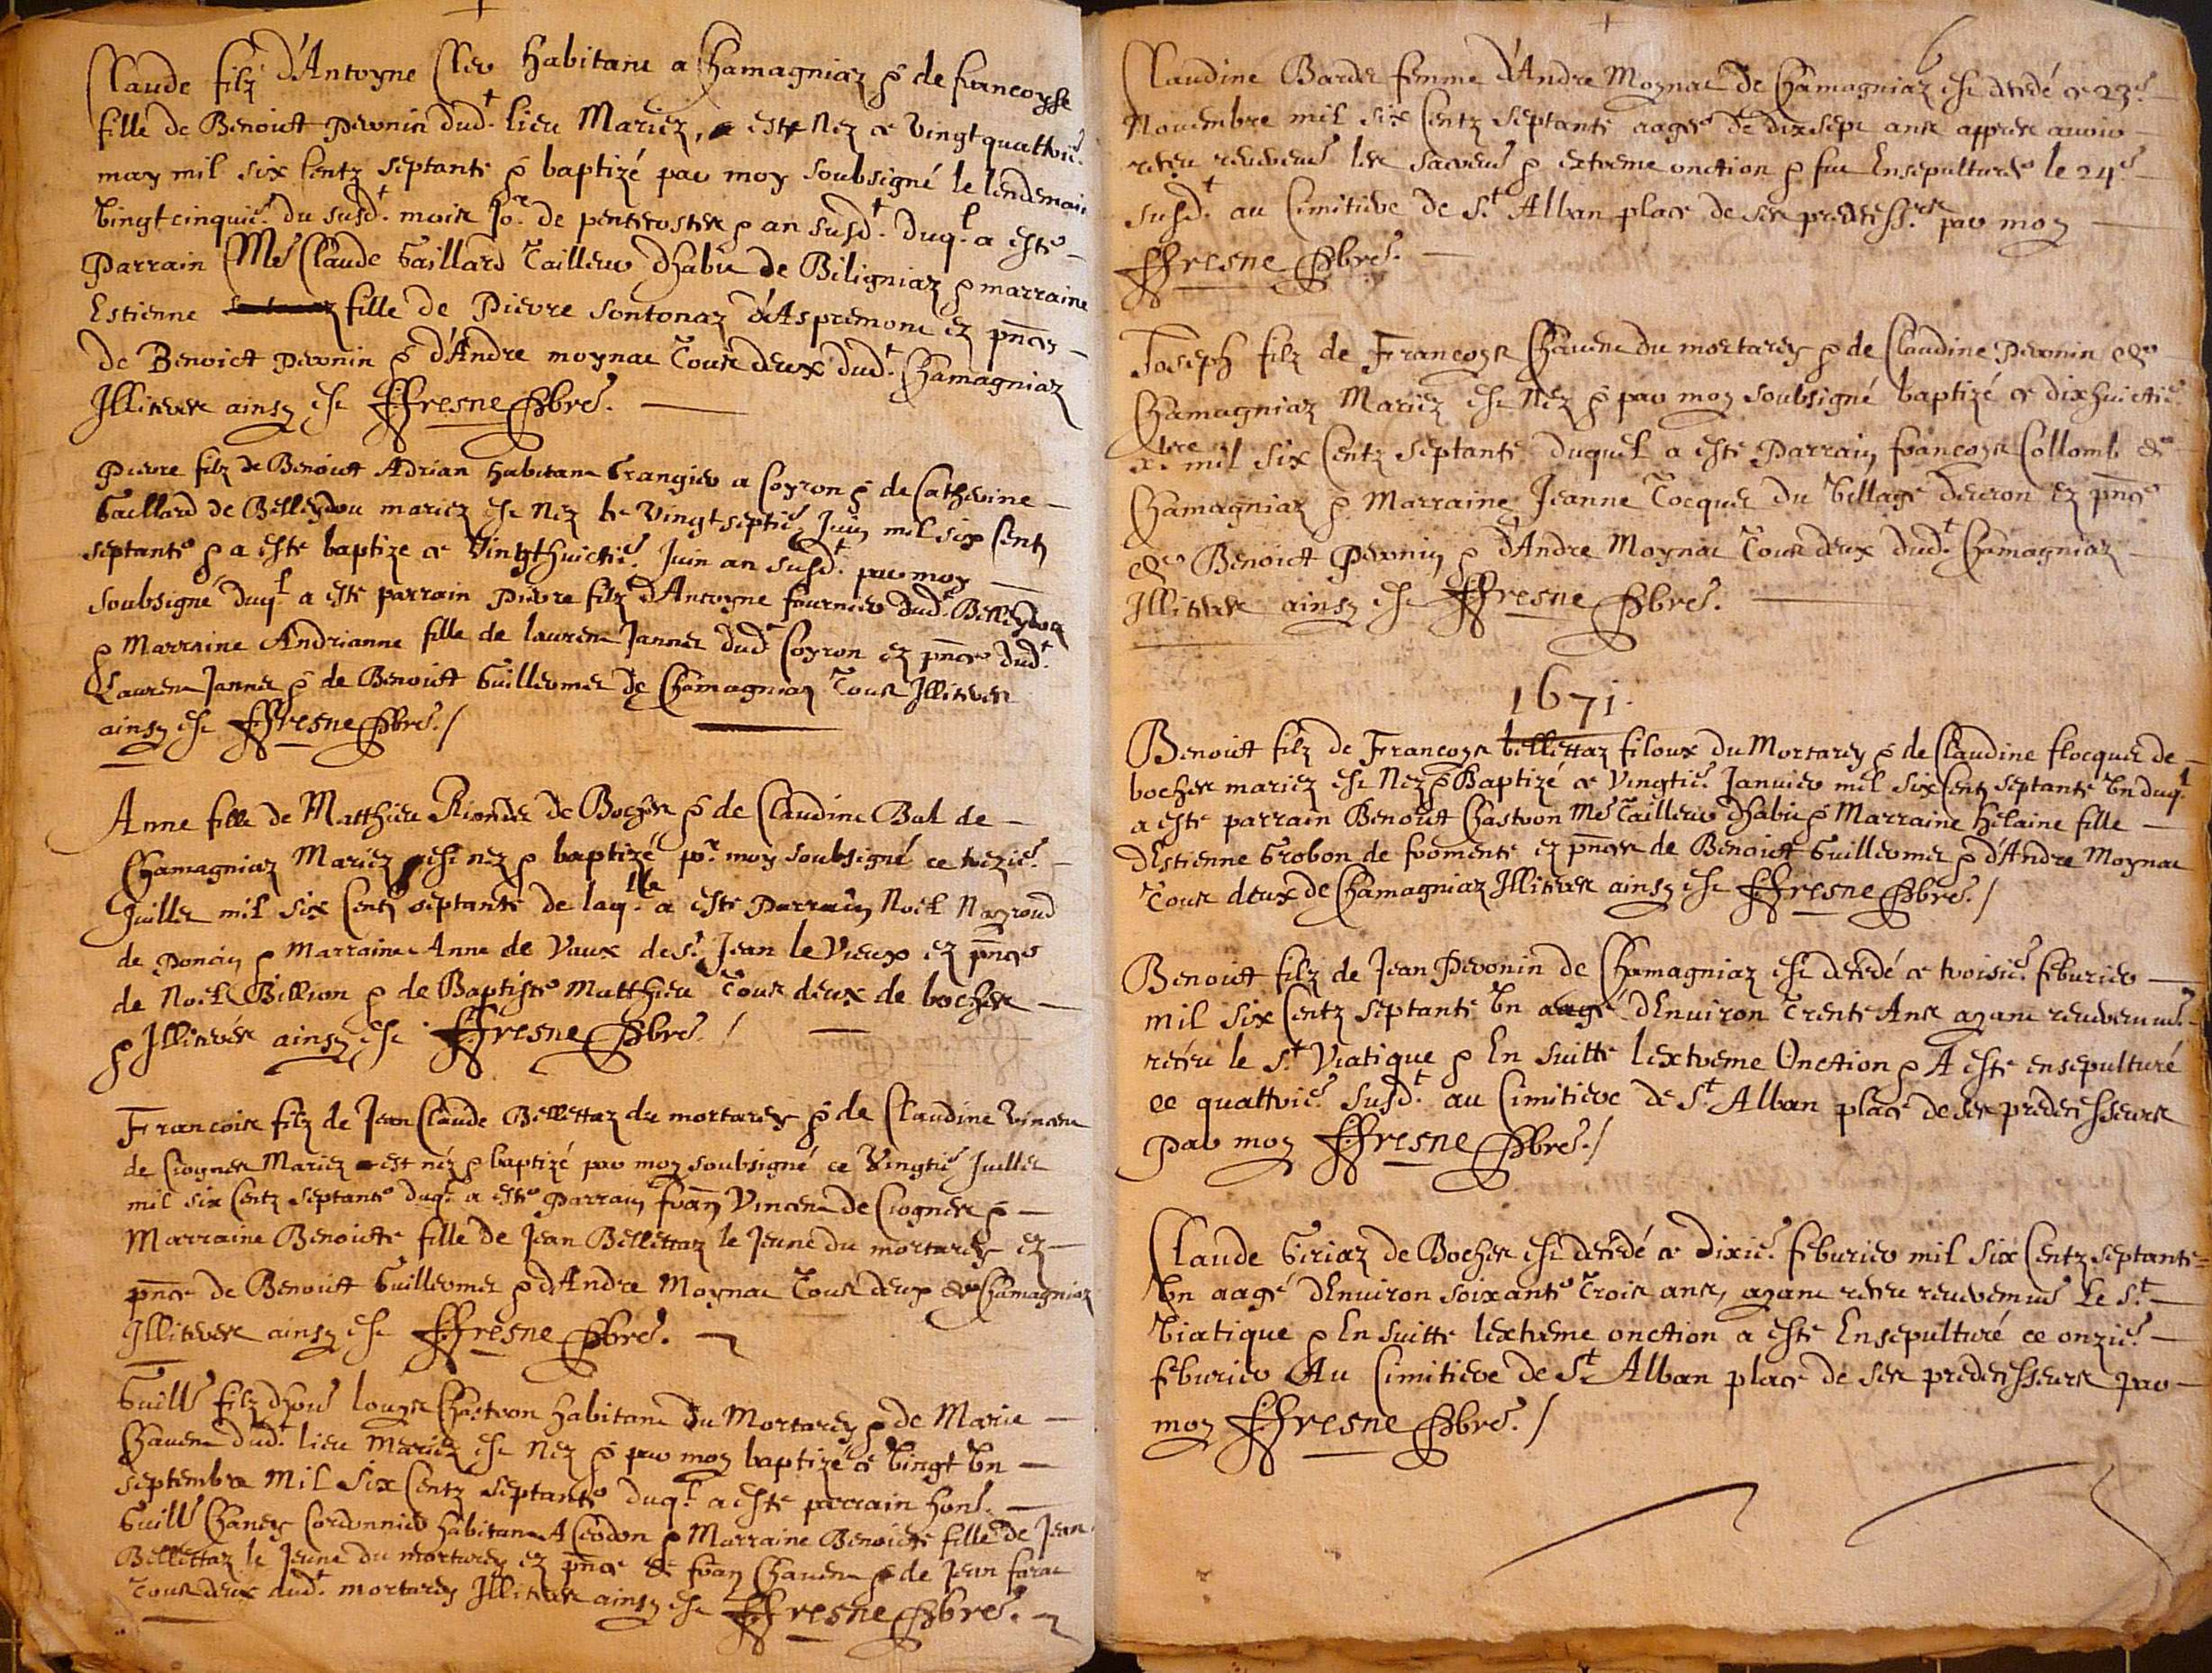 Claude filz d'Antoyne Cler habitant a Chamagniaz & de francoyse
fille de Benoictt Peronin dud.t lieu Mariez, est Nez ce vingtquattrie.
may mil six Centz septante & baptizé par moy soubsigné le lendemain
vingtcinquie. du susd.t mois Jo.r de pentecostes & an susd.t duq.l a este
Parrain Me Claude Gaillard Tailleur dhabit de Biligniaz & marraine
Estienne fille de Pierre Sontonaz d'Aspremont ez pn̄ces
de Benoictt Peronin & d'Andre moynat Tous deux dud.t Chamagniaz
Illiteres ainsy est ffresne Pbre.
Pierre filz de Benoictt Adrian habitant Grangier a Coyron & de Catherine
Gaillard de Belleydou mariez est Nez le vingtseptie. Juin mil six Centz
septante & a este baptize ce vingthuictie. Juin an susd.t par moy
soubsigné duq.l a este parrain Pierre filz d'Antoyne fournier dud.t Belleydou
& Marraine Andrianne fille de laurent Jannet dud.t Coyron ez pn̄ce dud.t
Laurent Jannet & de Benoictt Guillermet de Chamagniaz Tous Illiteres
ainsy est ffresne Pbre./
Anne fille de Matthieu Riondet de Boches & de Claudine Bal de
Chamagniaz Mariez est nez & baptizé p.r moy soubsigné ce trezie.
Juillet mil six Centz septante de laq.lle a este Parrain Noel Nayroud
de Poncin & Marraine Anne de Vaux de S.t Jean le Vieux ez pn̄ce
de Noel Billion & de Baptiste Matthieu Tous deux de boches
& Illiteres ainsy est ffresne Pbre./
Francois filz de Jean Claude Bellettaz du mortarey & de Claudine Vincent
de Ciognes Mariez est néz & baptizé par moy soubsigné ce Vingtie. Juillet
mil six Centz septante duq.l a este Parrain frān Vincent de Ciognes &
Marraine Benoicte fille de Jean Bellettaz le Jeune du mortarey ez
pn̄ce de Benoictt Guillermet & d'Andre Moynat Tous deux de Chamagniaz
Illiteres ainsy est ffresne Pbre.
Guill. filz dhon. louys Chastron habitant du Mortarey & de Marie
Chavent dud.t lieu Mariez est Nez & par moy baptizé ce vingt Vn
septembre Mil Six Centz septante duq.l a este parrain hon.
Guill. Chaney Cordonnier habitant A Cerdon & Marraine Benoicte fille de Jean
Bellettaz le Jeune du mortarey ez pn̄ce de frān Chavent & de Jean farat
Tous deux dud.t mortarey Illiteres ainsy est ffresne Pbre.
6
Claudine Bardet femme d'Andre Moynat de Chamagniaz est decedé ce 23e.
Nouembre mil six Centz septante aagee de dixsept ans appres auoir
receu les sacrem & extreme onction & fut Ensepulturee le 24e
susd.t au Cimitiere de S.t Alban place de ses predecess.rs par moy
ffresne Pbre.
Joseph filz de Francoys Chavent du mortarey & de Claudine Peronin de
Chamagniaz Mariez est Nez & par moy soubsigné baptizé ce dixhuictie.
x.bre mil six Centz septante duquel a este Parrain francoys Collomb de
Chamagniaz & Marraine Jeanne Tocquet du Village ez pn̄ce
de Benoictt Peronin & d'Andre Moynat Tous deux dud.t Chamagniaz
Illiteres ainsy est ffresne Pbre.
1671.
Benoictt filz de Francoys bellettaz filoux du Mortarey & de Claudine flocquet de
boches mariez est Nez & Baptizé ce vingtie. Januier mil six Centz septante Vn duq.l
a este parrain Benoictt Chastron Me Tailleur dhabit & Marraine Helaine fille
dEstienne Grobon de fromente ez pn̄ces de Benoictt Guillermet & d'Andre Moynat
Tous deux de Chamagniaz Illiteres ainsy est ffresne Pbre./
Benoictt filz de Jean Peronin de Chamagniaz est decedé ce troisie. feburier
mil six Centz septante Vn aagé dEnuiron Trente Ans ayant reuerem.t
receu le S.t Viatique & En suitte lextreme Onction & A este ensepulturé
ce quattrie. Susd.t au Cimitiere de S.t Alban place de ses predecesseurs
par moy ffresne Pbre./
Claude Giriaz de Boches est decedé ce Dixie. feburier mil six Centz septante=
Vn aagé dEnuiron soixante Trois ans, ayant receu reueremt Le S.t
Viatique & En suitte lextreme onction a este Ensepulturé ce onzie.
feburier Au Cimitiere de S.t Alban place de ses predecesseurs par
moy ffresne Pbre./